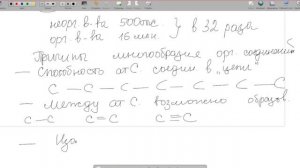 неорг. в-ва 500тыс
орг. в-ва 15 млн. } в 32 раза
Причины многообразия орг. соединений
– Способность ат. С соедин. в "цепи"
С – С – С – С – С – С – С
– Между ат. С возможно образов.
С – С С = С С ≡ С
– Изо